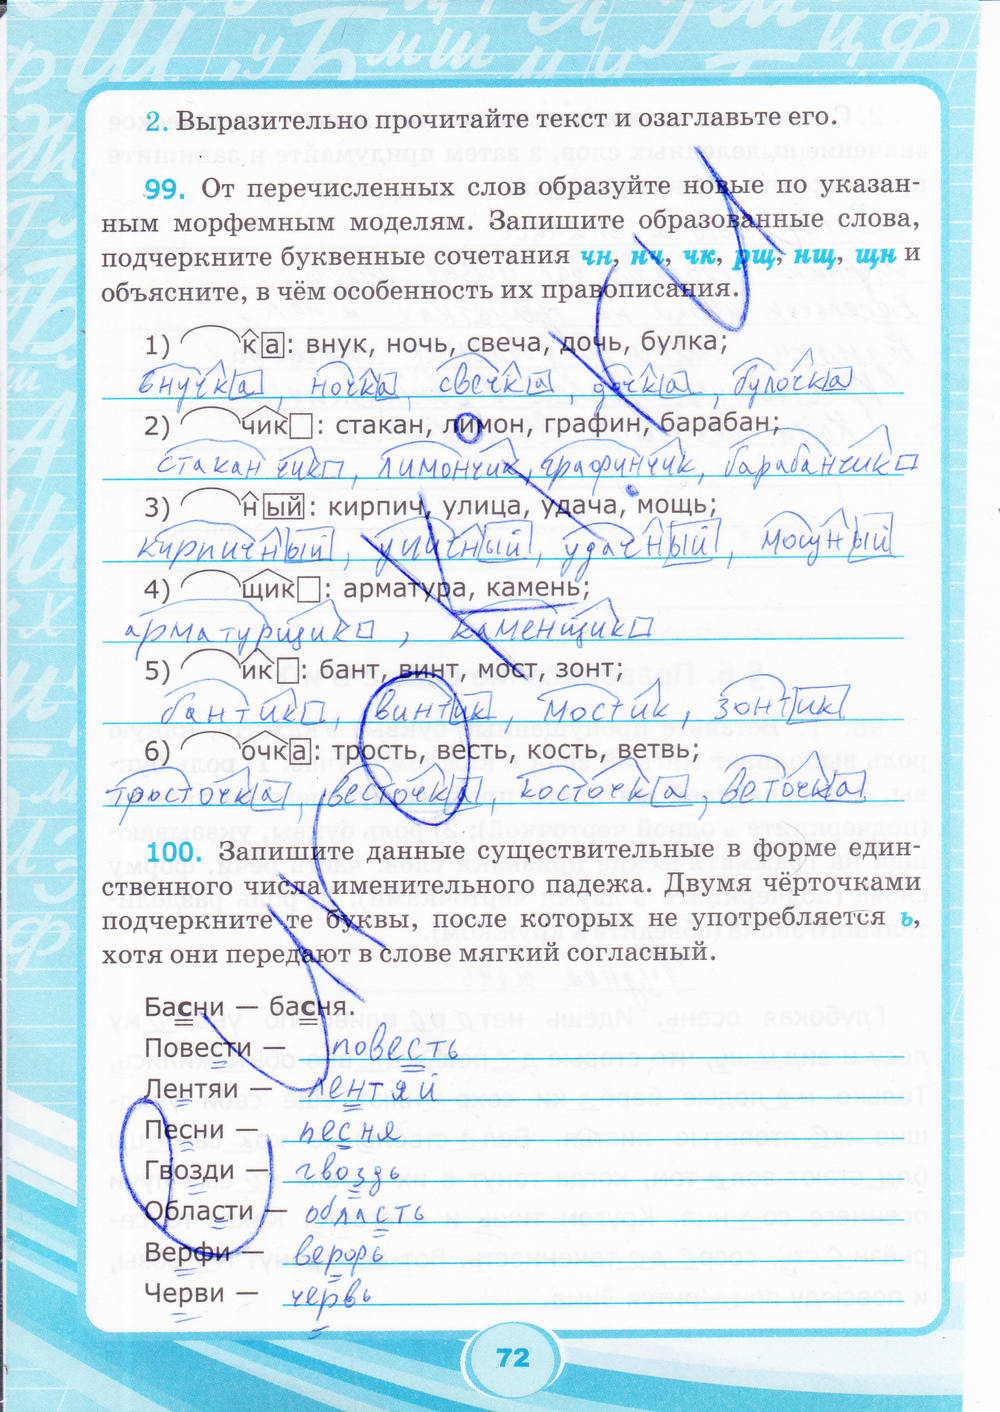 2. Выразительно прочитайте текст и озаглавьте его.
99. От перечисленных слов образуйте новые по указан-
ным морфемным моделям. Запишите образованные слова,
подчеркните буквенные сочетания чн, нч, чк, рщ, нщ, щн и
объясните, в чём особенность их правописания.
1) ка: внук, ночь, свеча, дочь, булка;
внучка, ночка, свечка, дочка, булочка
2) чик: стакан, лимон, графин, барабан;
стаканчик, лимончик, графинчик, барабанчик
3) ный: кирпич, улица, удача, мощь;
кирпичный, уличный, удачный, мощный
4) щик: арматура, камень;
арматурщик, каменщик
5) ик: бант, винт, мост, зонт;
бантик, винтик, мостик, зонтик
6) очка: трость, весть, кость, ветвь;
тросточка, весточка, косточка, веточка
100. Запишите данные существительные в форме един-
ственного числа именительного падежа. Двумя чёрточками
подчеркните те буквы, после которых не употребляется ь,
хотя они передают в слове мягкий согласный.
Басни — басня.
Повести — повесть
Лентяи — лентяй
Песни — песня
Гвозди — гвоздь
Области — область
Верфи — верфь
Черви — червь
72